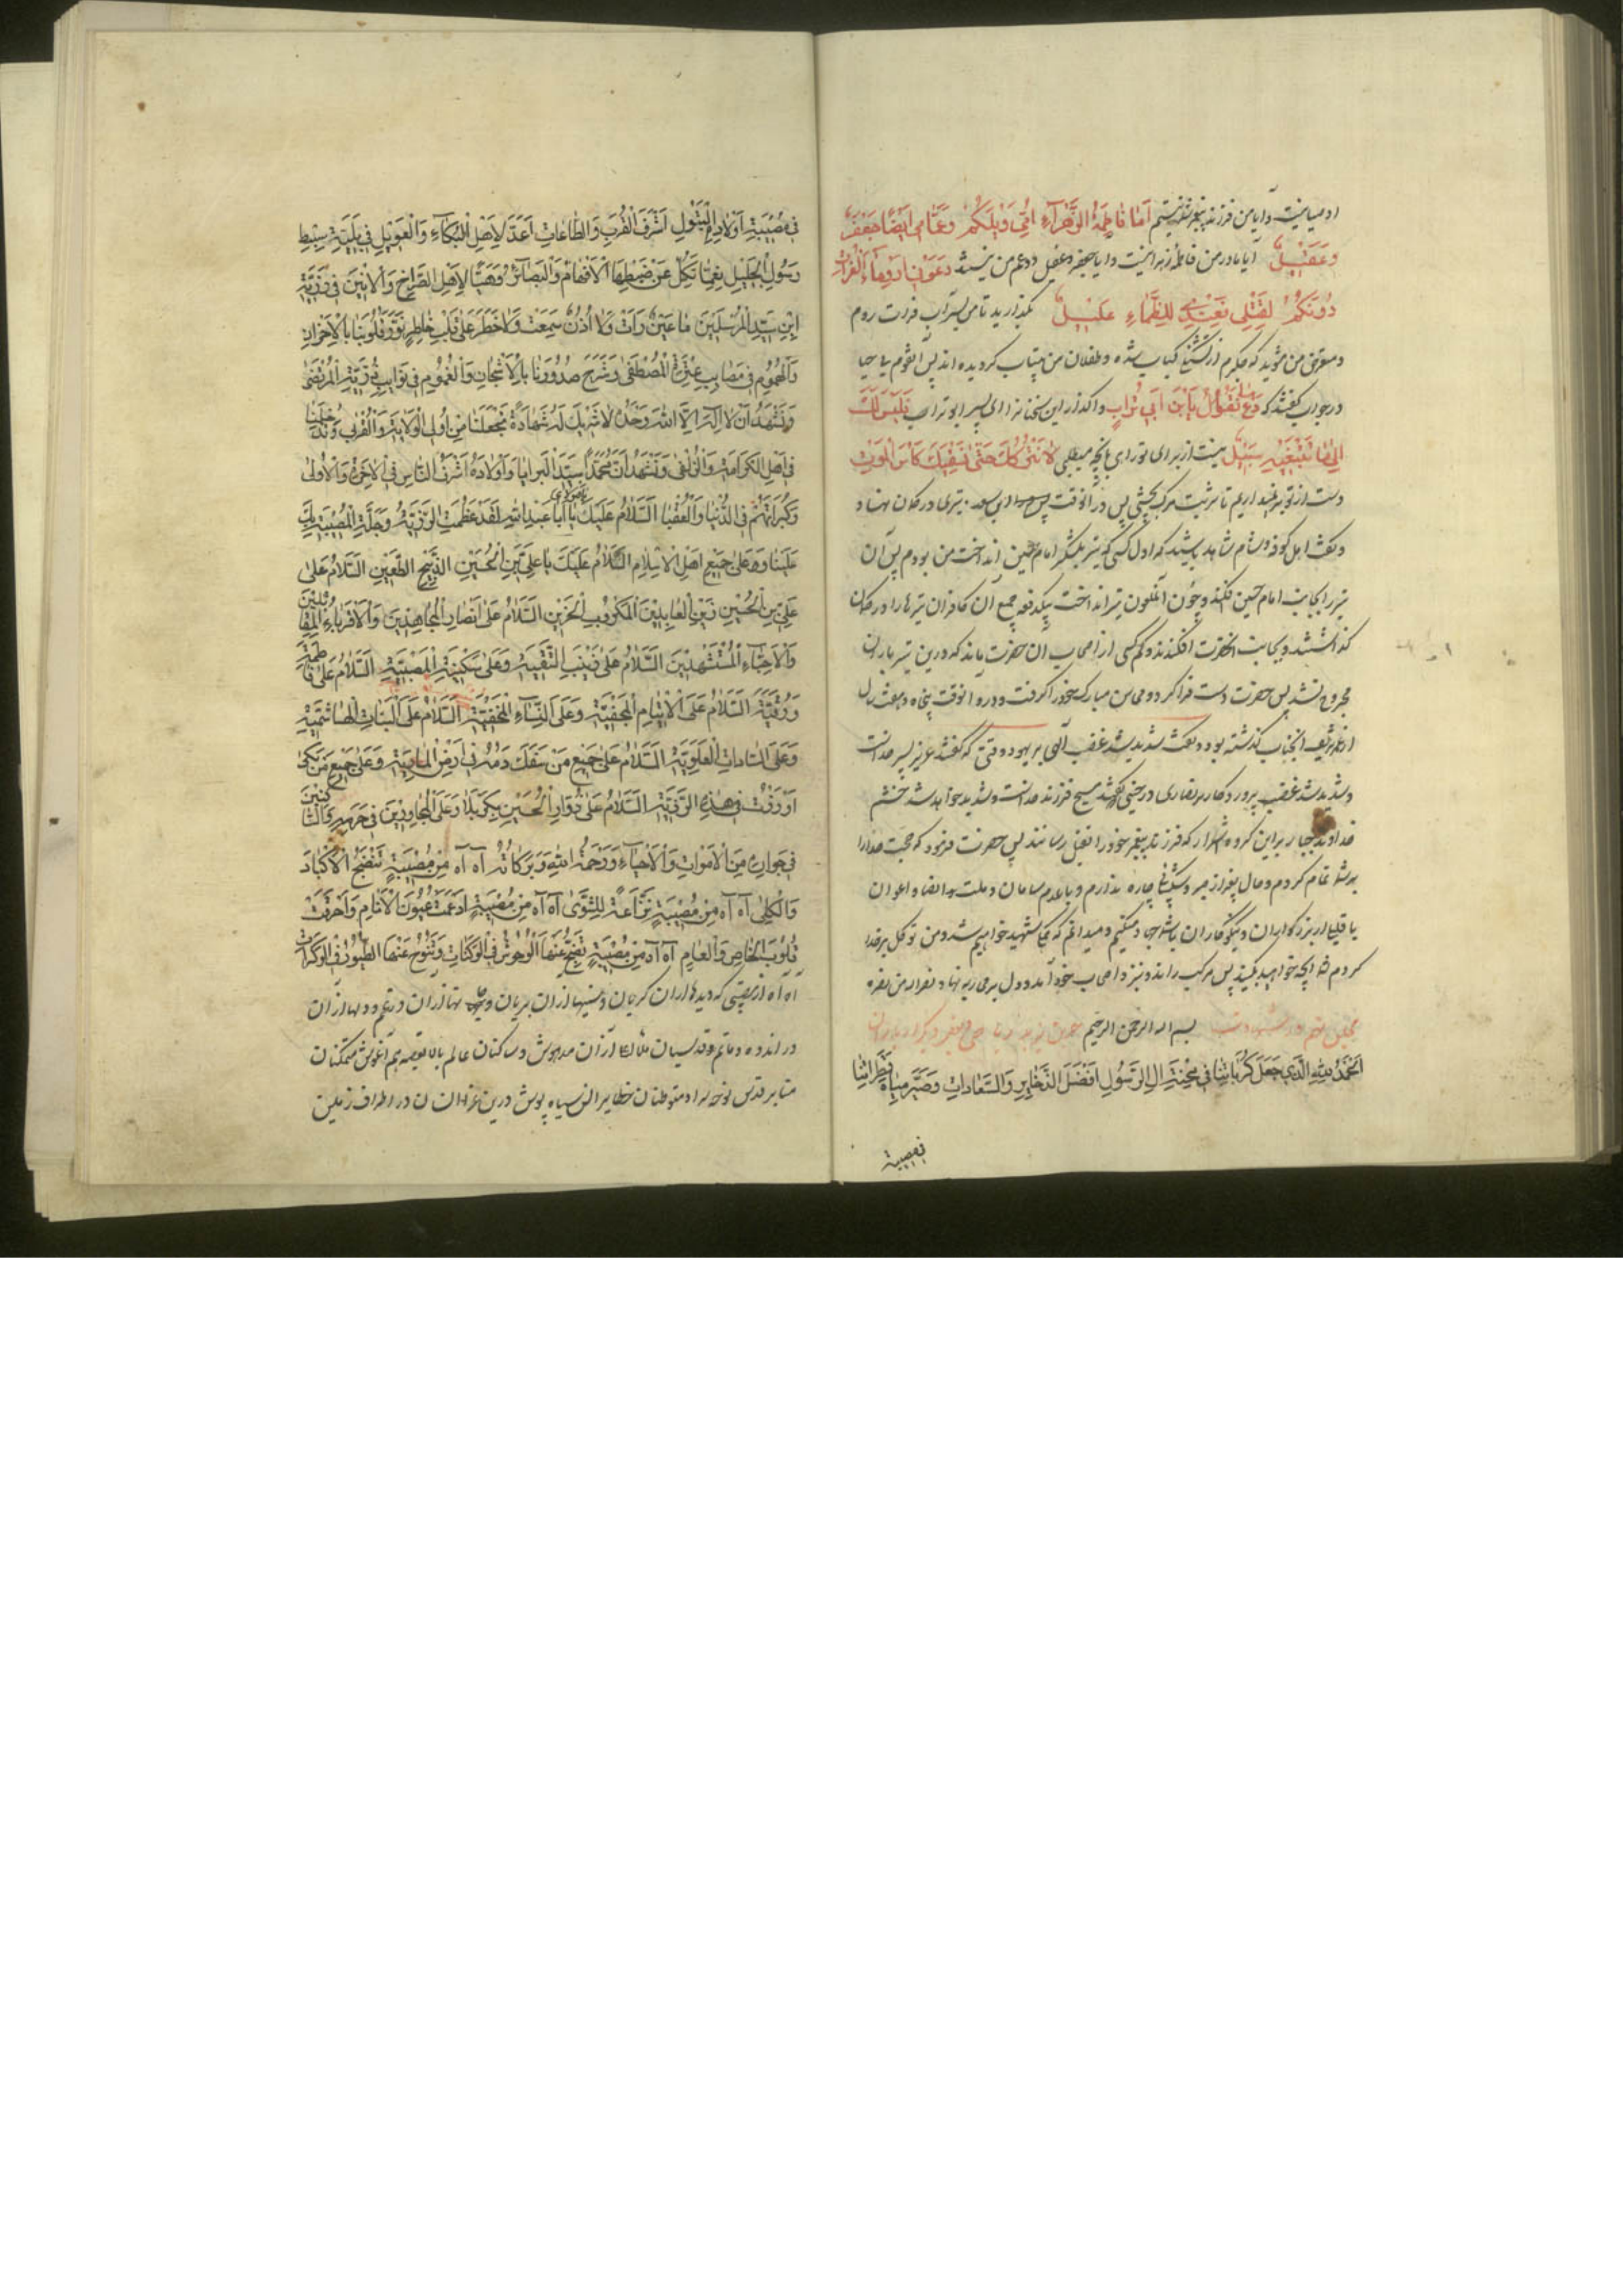 او میانیت و ایا من فرزند پیغمبر شما نیستم اَمٰا فاطِمَةُ الزَّهْرٰآءِ اُمّی وَیْلَکُمْ وَعَمّٰای اَیْضًا جَعْفَرٌ
وَعَقیٖلٌ آیا مادر من فاطمهٔ زهرا نیست و ایا جعفر و عقیل دو عم من نیستند دَعَوْنی اَرِدْ مٰاءَ الْفُراتِ
دُونَکُمْ لِقَتْلی فَعِنْدی لِلظَّمٰاءِ غَلیٖلٌ بگذارید تا من بسر آب فرات روم
و متعرض من مشوید که جگرم از تشنگی کباب شده و طفلان من بیتاب گردیده اند پس آنقوم بی حیا
در جواب گفتند که دَعْ مٰا تَقُولُ یَابْنَ اَبی تُرابٍ واگذار این سخنانرا ای پسر ابو تراب فَلَیْسَ لَکَ
اِلیٰ مٰا تَبْتَغیٖهِ سَبیٖلٌ نیست از برای تو راهی بانچه میطلبی لٰا نَتْرُکُکَ حَتّیٰ نَسْقِیَکَ کَاْسَ الْمَوْتِ
دست از تو بر نمیداریم تا شربت مرگ بچشی پس در آنوقت پسر سعد تیری در کمان نهاد
و گفت اهل کوفه و شام شاهد باشید که اول کسی که تیر بلشکر امام حسین انداخت من بودم پس آن
تیر را بجانب امام حسین افکند و چون آن ملعون تیر انداخت بیکدفعه جمیع آن کافران تیرها را در کمان
گذاشتند و بجانب انحضرت افکندند و کم کسی از اصحاب ان حضرت ماند که در این تیر باران
مجروح نشد پس حضرت دست فرا کرد و محاسن مبارک خود را گرفت و در آنوقت پنجاه و هفت سال
از عمر شریف انجناب گذشته بود و گفت شدید شد غضب الهی بر یهود وقتی که گفتند عزیر پسر خداست
و شدید شد غضب پروردگار بر نصاری در حینی که گفتند مسیح فرزند خداست و شدید خواهد شد خشم
خداوند جبار بر این گروه اشرار که فرزند پیغمبر خود را بقتل رسانند پس حضرت فرمود که حجت خدا را
بر شما تمام کردم و حال بغیر از صبر و شکیبائی چاره ندارم و با عدم سامان و قلت انصار و اعوان
با قلیلی از بزرگواران و نیکوکاران با شما جهاد میکنم و میدانم که همگی شهید خواهیم شد و من توکل بر خدا
کردم شما انچه خواهید بکنید پس مرکب را راند و بنزد اصحاب خود آمد و دل بر محاربه نهاد
مجلس در شهادت بسم الله الرحمن الرحیم
اَلْحَمْدُ لِلّٰهِ الَّذی جَعَلَ کُرُبٰاتِنٰا فی مِحْنَةِ اٰلِ الرَّسُولِ اَفْضَلَ الذَّخٰایِرِ وَالسَّعٰادٰاتِ وَصَیَّرَ مِیٰاهَ قَطَرٰاتِنٰا
فی مصیبة
فی مُصیٖبَةِ اَوْلٰادِ الْبَتُولِ اَشْرَفَ الْقُرَبِ وَالطّٰاعٰاتِ اَعَدَّ لِاَهْلِ الْبُکٰآءِ وَالْعَویٖلِ فی بَلِیَّةِ سِبْطِ
رَسُولِ الْجَلیٖلِ نِعَمًا تَکِلُّ عَنْ ضَبْطِهَا الْاَفْهٰامُ وَالْبَصٰائِرُ وَهَیَّأَ لِاَهْلِ الصُّرٰاخِ وَالْاَنیٖنِ فی رَزِیَّةِ
ابْنِ سَیِّدِ الْمُرْسَلیٖنَ مٰا عَیْنٌ رَاَتْ وَلٰا اُذُنٌ سَمِعَتْ وَلٰا خَطَرَ عَلیٰ قَلْبِ خٰاطِرٍ نَوَّرَ قُلُوبَنٰا بِالْاَحْزٰانِ
وَالْهُمُومِ فی مَصٰایِبِ عِتْرَةِ الْمُصْطَفیٰ وَشَرَحَ صُدُورَنٰا بِالْاَشْجٰانِ وَالْغُمُومِ فی نَوٰایِبِ ذُرِّیَّةِ الْمُرْتَضیٰ
وَنَشْهَدُ اَنْ لٰا اِلٰهَ اِلَّا اللّٰهُ وَحْدَهُ لٰا شَریٖکَ لَهُ شَهٰادَةً تَجْعَلُنٰا مِنْ اُولِی الْوَلٰایَةِ وَالْقُرْبیٰ وَتُدْخِلُنٰا
فی اَهْلِ الْکَرٰامَةِ وَالزُّلْفیٰ وَنَشْهَدُ اَنَّ مُحَمَّدًا سَیِّدُ الْبَرٰایٰا وَاَوْلٰادَهُ اَشْرَفُ النّٰاسِ فِی الْاٰخِرَةِ وَالْاُولیٰ
وَکُبَرٰائُهُمْ فِی الدُّنْیٰا وَالْعُقْبیٰ اَلسَّلٰامُ عَلَیْکَ یٰا اَبٰا عَبْدِ اللّٰهِ لَقَدْ عَظُمَتِ الرَّزِیَّةُ وَجَلَّتِ الْمُصیٖبَةُ بِکَ
عَلَیْنٰا وَعَلیٰ جَمیٖعِ اَهْلِ الْاِسْلٰامِ اَلسَّلٰامُ عَلَیْکَ یٰا عَلِیَّ بْنَ الْحُسَیْنِ الذَّبیٖحِ الطَّعیٖنِ اَلسَّلٰامُ عَلیٰ
عَلِیِّ بْنِ الْحُسَیْنِ زَیْنِ الْعٰابِدیٖنَ الْمَکْرُوبِ الْحَزیٖنِ اَلسَّلٰامُ عَلیٰ اَنْصٰارِ الْمُجٰاهِدیٖنَ وَالْاَقْرِبٰاءِ الْمُقٰاتِلیٖنَ
وَالْاَحِبّٰاءِ الْمُسْتَشْهَدیٖنَ اَلسَّلٰامُ عَلیٰ زَیْنَبَ النَّقِیَّةِ وَعَلیٰ سَکیٖنَةِ الْمُصیٖبَةِ اَلسَّلٰامُ عَلیٰ فٰاطِمَةَ
وَرُقَیَّةَ اَلسَّلٰامُ عَلَی الْاَیْتٰامِ وَعَلَی النِّسٰآءِ اَلسَّلٰامُ عَلَی الْبَنٰاتِ الْهٰاشِمِیَّةِ
وَعَلَی السّٰادٰاتِ الْعَلَوِیَّةِ اَلسَّلٰامُ عَلیٰ جَمیٖعِ مَنْ سُفِکَ دَمُهُ فی اَرْضِ الْمٰارِیَةِ وَعَلیٰ جَمیٖعِ مَنْ بَکیٰ
فی هٰذِهِ الرَّزِیَّةِ اَلسَّلٰامُ عَلیٰ زُوّٰارِ الْحُسَیْنِ بِکَرْبَلٰا وَعَلَی الْمُجٰاوِریٖنَ فی حَرَمِهِ وَالسّٰاکِنیٖنَ
فی جِوٰارِهِ مِنَ الْاَمْوٰاتِ وَالْاَحْیٰآءِ وَرَحْمَةُ اللّٰهِ وَبَرَکٰاتُهُ آه آه مِنْ مُصیٖبَةٍ تُنْضِجُ الْاَکْبٰادَ
وَالْکُلیٰ آه آه مِنْ مُصیٖبَةٍ نَزّٰاعَةٍ لِلشَّویٰ آه آه مِنْ مُصیٖبَةٍ اَدْمَعَتْ عُیُونَ الْاَنٰامِ وَاَحْرَقَتْ
قُلُوبَ الْخٰاصِ وَالْعٰامِ آه آه مِنْ مُصیٖبَةٍ تَضِجُّ عَنْهَا الْوُحُوشُ فِی الْوَکَنٰاتِ وَتَنُوحُ عَنْهَا الطُّیُورُ فِی الْوَکَرٰاتِ
آه آه از مصیبتی که دیدها از ان گریان و سینها از ان بریان و از ان در غم و دلها از آن
در اندوه و ماتم و قدسیان ملاء اعلا از آن مدهوش و ساکنان عالم بالا بغصه هم آغوش متمکنان
منابر قدس نوحه سرا و متوطنان حظایر انس سیاه پوش در این عزا در اطراف زمین